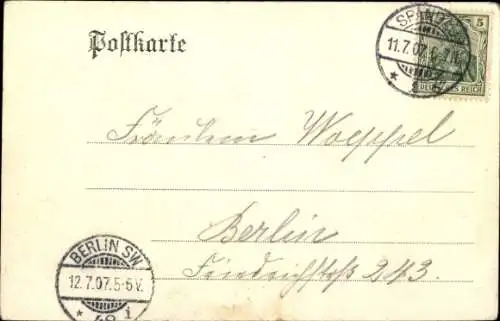 Postkarte
SPAND
11.7.07.
5
DEUTSCHES REICH
Fräulein Woeppel
Berlin
Friedrichstraße 243.
BERLIN SW
12.7.07.5-6V.
* 48 i